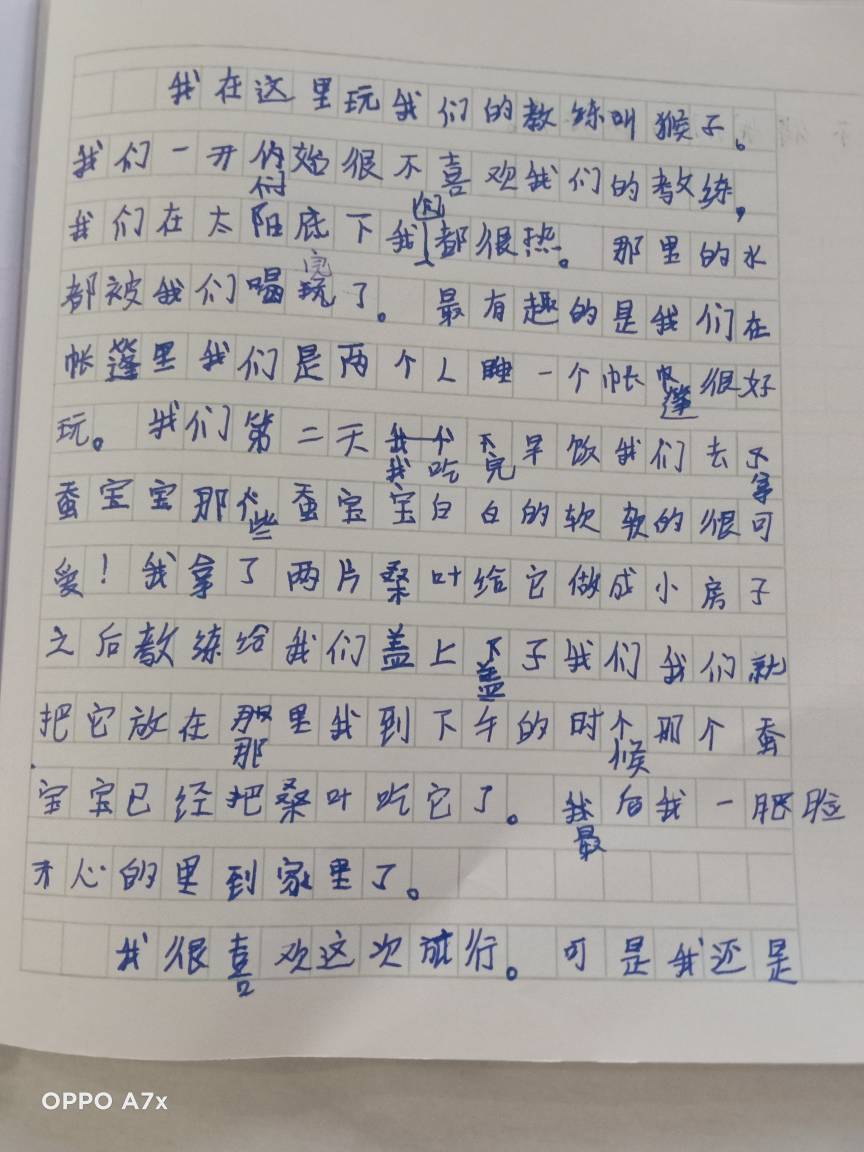 我在这里玩我们的教练叫猴子。
我们一开始很不喜欢我们的教练,
我们在太阳底下我们都很热。那里的水
都被我们喝完了。最有趣的是我们在
帐篷里我们是两个人睡一个帐篷很好
玩。我们第二天我吃完早饭我们去拿
蚕宝宝那些蚕宝宝白白的软软的很可
爱!我拿了两片桑叶给它做成小房子
之后教练给我们盖上盖子我们我们就
把它放在那里我到下午的时候那个蚕
宝宝已经把桑叶吃它了。最后我一脸
开心的里到家里了。
我很喜欢这次旅行。可是我还是
OPPO A7x